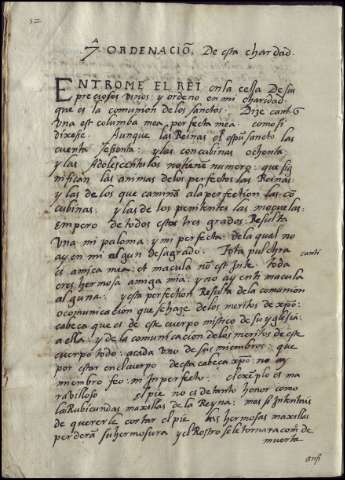 7ª ORDENACIÕ, De esta charidad.
ENTROME EL REI en la cella De sus
preciosos vinos: y ordeno en mi charidad
que es la comunion de los sanctos. Dize cant. 6
Una est columba mea, perfecta mea: como si
dixese. Aunque las Reinas el espũ sancto las
cuenta sesenta: y las concubinas ochenta
y las Adolescentulas no tiene numero: que sig
nifican las animas de los perfectos las Reinas
y las de los que caminã ala perfection las cõ
cubinas: y las de los penitentes las moçuelas:
empero de todos estos tres grados: Resulta
Una mi paloma: y mi perfecta: de la qual no
ay en mi algun desagrado. Tota pulchra
canti
es amica mea: et macula nõ est in te. toda
eres hermosa amiga mia: y no ay en ti macula
alguna: y esta perfection Resulta de la comunion
o comunicacion que se haze de los meritos de xpõ:
cabeça que es de este cuerpo mistico de su yglesia:
a ella: y de la comunicacion de los meritos de este
cuerpo todo: a cada uno de sus miembros: que
por estar en el cuerpo de esta cabeça xpõ no ay
miembro feo: ni Imperfecto. el exẽplo es ma
rabilloso el pie no es de tanto honor como
las Rubicundas maxillas de la Reyna: mas si Intentais
de quererle cortar el pie las hermosas maxillas
perderã su hermosura y el Rostro se le tornara com̃ de
muerta
ansi